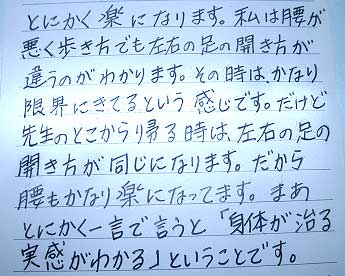 とにかく楽になります。私は腰が
悪く歩き方でも左右の足の開き方が
違うのがわかります。その時は、かなり
限界にきてるという感じです。だけど
先生のとこから帰る時は、左右の足の
開き方が同じになります。だから
腰もかなり楽になってます。まあ
とにかく一言で言うと「身体が治る
実感がわかる」ということです。